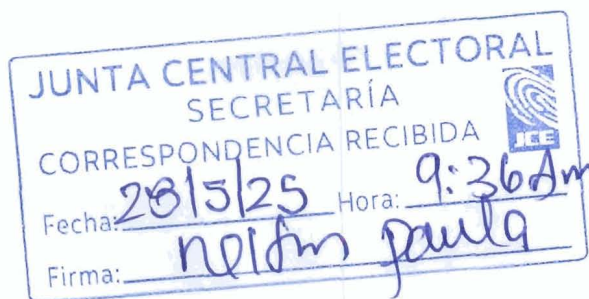 JUNTA CENTRAL ELECTORAL
SECRETARÍA
CORRESPONDENCIA RECIBIDA
JCE
Fecha: 28/5/25 Hora: 9:36 Am
Firma: nelson paula